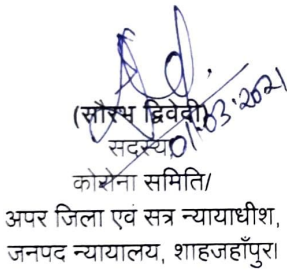 01.03.2021
(सौरभ द्विवेदी)
सदस्य,
कोरोना समिति/
अपर जिला एवं सत्र न्यायाधीश,
जनपद न्यायालय, शाहजहाँपुर।